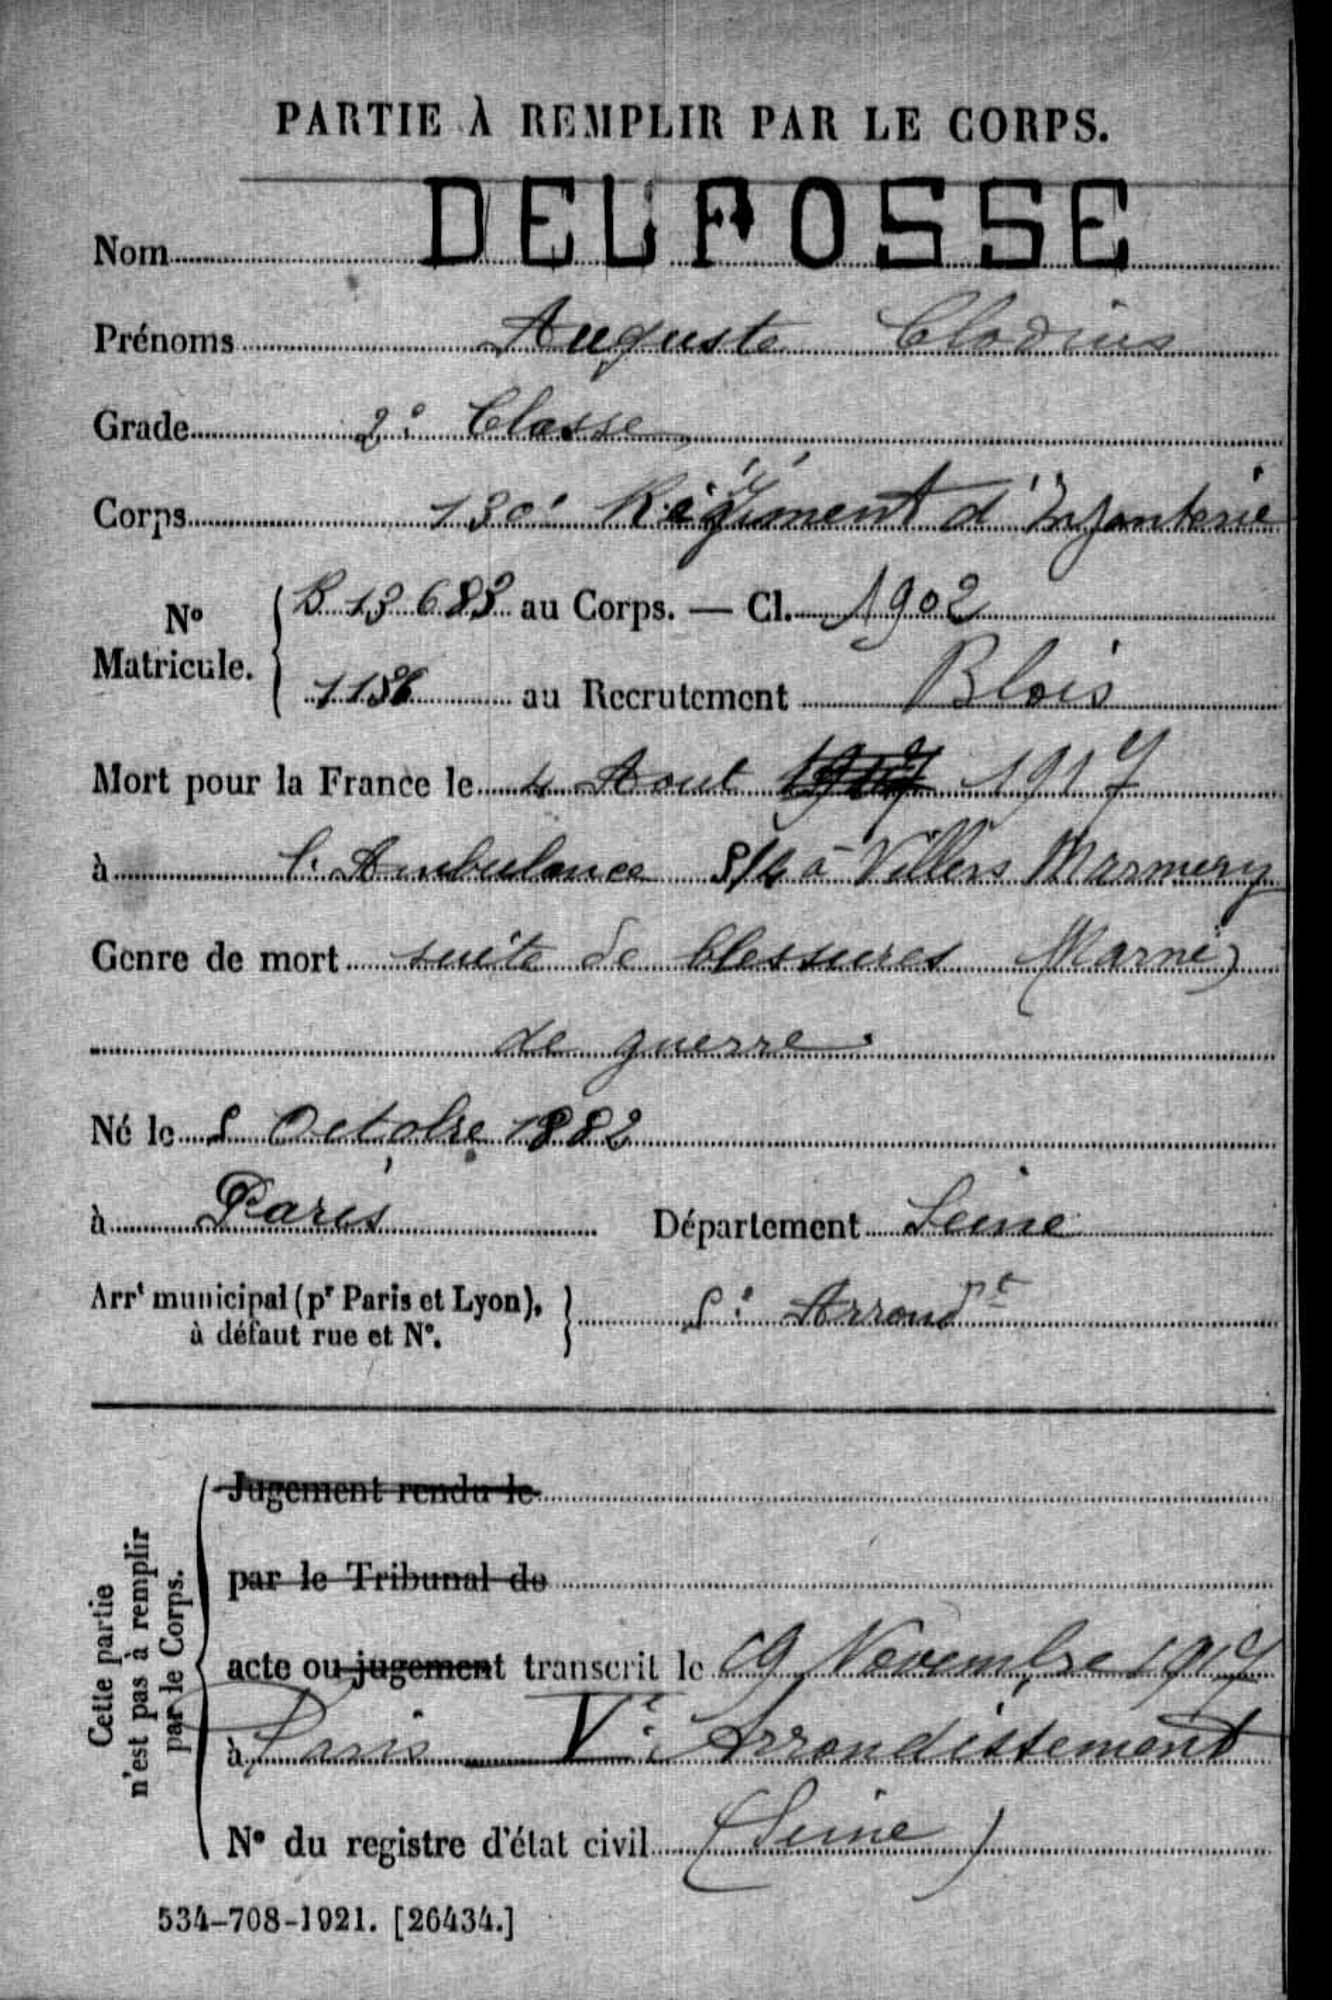 PARTIE À REMPLIR PAR LE CORPS.
Nom DELFOSSE
Prénoms Auguste Clodius
Grade 2e Classe
Corps 130e Régiment d'Infanterie
No Matricule. B 13 683 au Corps. — Cl. 1902
1136 au Recrutement Blois
Mort pour la France le 4 Aout 1917
à l'Ambulance 5/4 à Villers Marmery
Genre de mort suite de blessures (Marne)
de guerre
Né le 5 Octobre 1882
à Paris Département Seine
Arrt municipal (pr Paris et Lyon), à défaut rue et No. 5e Arrondt
Cette partie n'est pas à remplir par le Corps.
Jugement rendu le
par le Tribunal de
acte ou jugement transcrit le 19 Novembre 1917
à Paris Ve Arrondissement
No du registre d'état civil (Seine)
534-708-1921. [26434.]